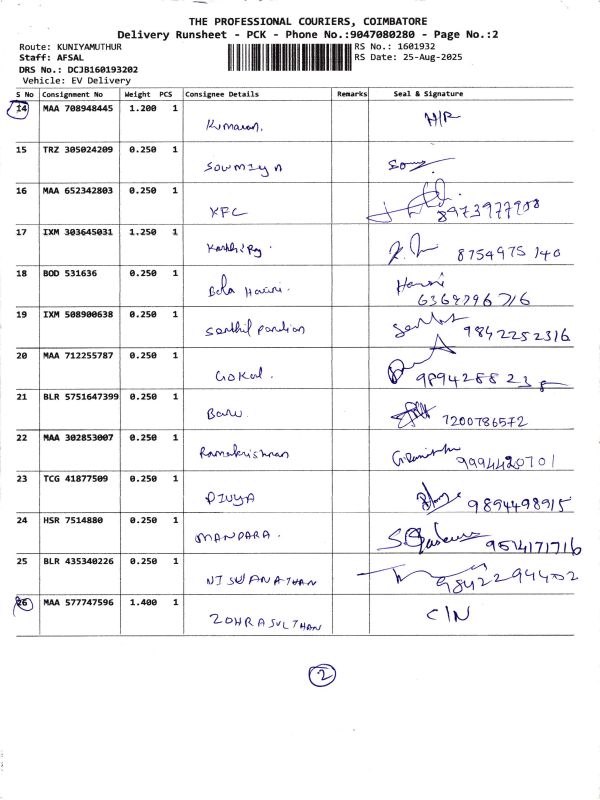 THE PROFESSIONAL COURIERS, COIMBATORE
Delivery Runsheet - PCK - Phone No.:9047080280 - Page No.:2
Route: KUNIYAMUTHUR RS No.: 1601932
Staff: AFSAL RS Date: 25-Aug-2025
DRS No.: DCJB160193202
Vehicle: EV Delivery
S No Consignment No Weight PCS Consignee Details Remarks Seal & Signature
14 MAA 708948445 1.200 1
Kumaran. H/R
15 TRZ 305024209 0.250 1
Soumiya
16 MAA 652342803 0.250 1
KFC 8973977908
17 IXM 303645031 1.250 1
8754975140
18 BOD 531636 0.250 1
Bala Harini. Harini
6364796716
19 IXM 508900638 0.250 1
Senthil pandian 9842252316
20 MAA 712255787 0.250 1
Gokul.
21 BLR 5751647399 0.250 1
7200786572
22 MAA 302853007 0.250 1
Ramakrishnan 9994420701
23 TCG 41877509 0.250 1
DIVYA 9894498915
24 HSR 7514880 0.250 1
MANDARA. 9514171716
25 BLR 435340226 0.250 1
VISWANATHAN 9842294402
26 MAA 577747596 1.400 1
ZOHRA SULTHAN C/N
2